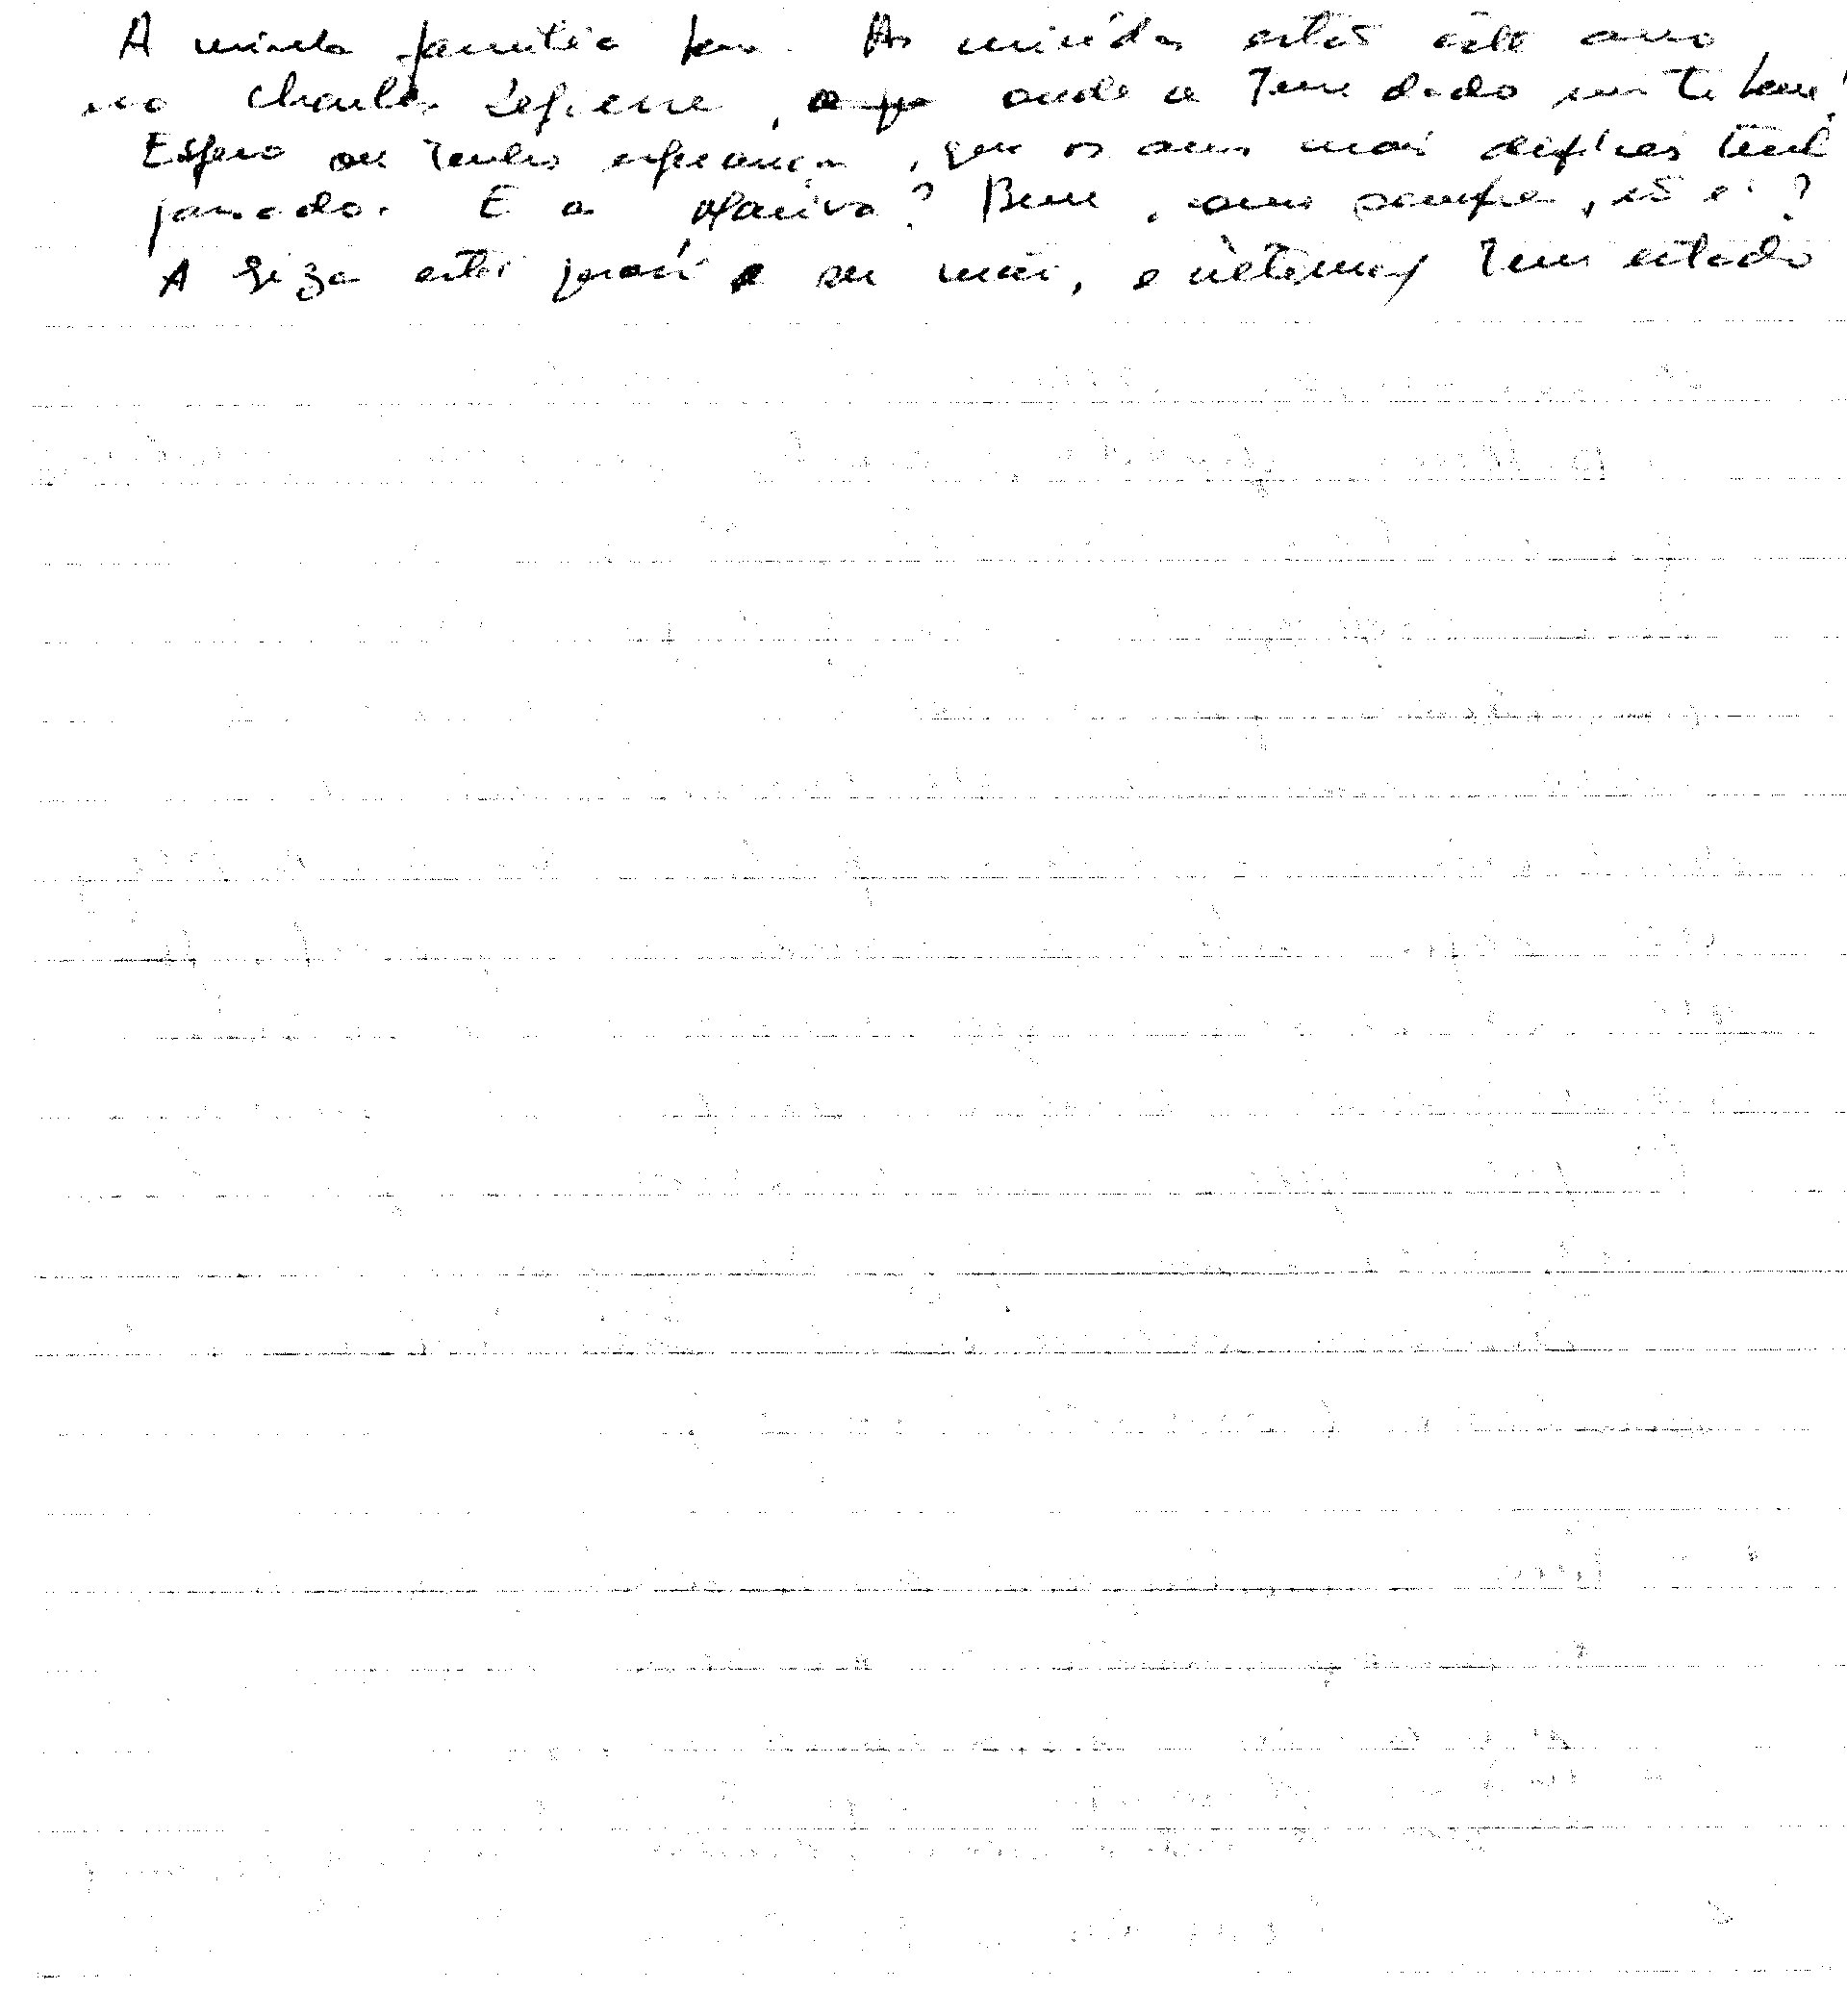 A minha família bem. As miúdas estão este ano
no Charles Lepierre, onde se tem dado muito bem!
Espero ou tenho esperança, que os anos mais difíceis tenham
passado. E a Marisa? Bem, como sempre, não é?
A Giza está para aí e ou mais, e ultimamente tem estado